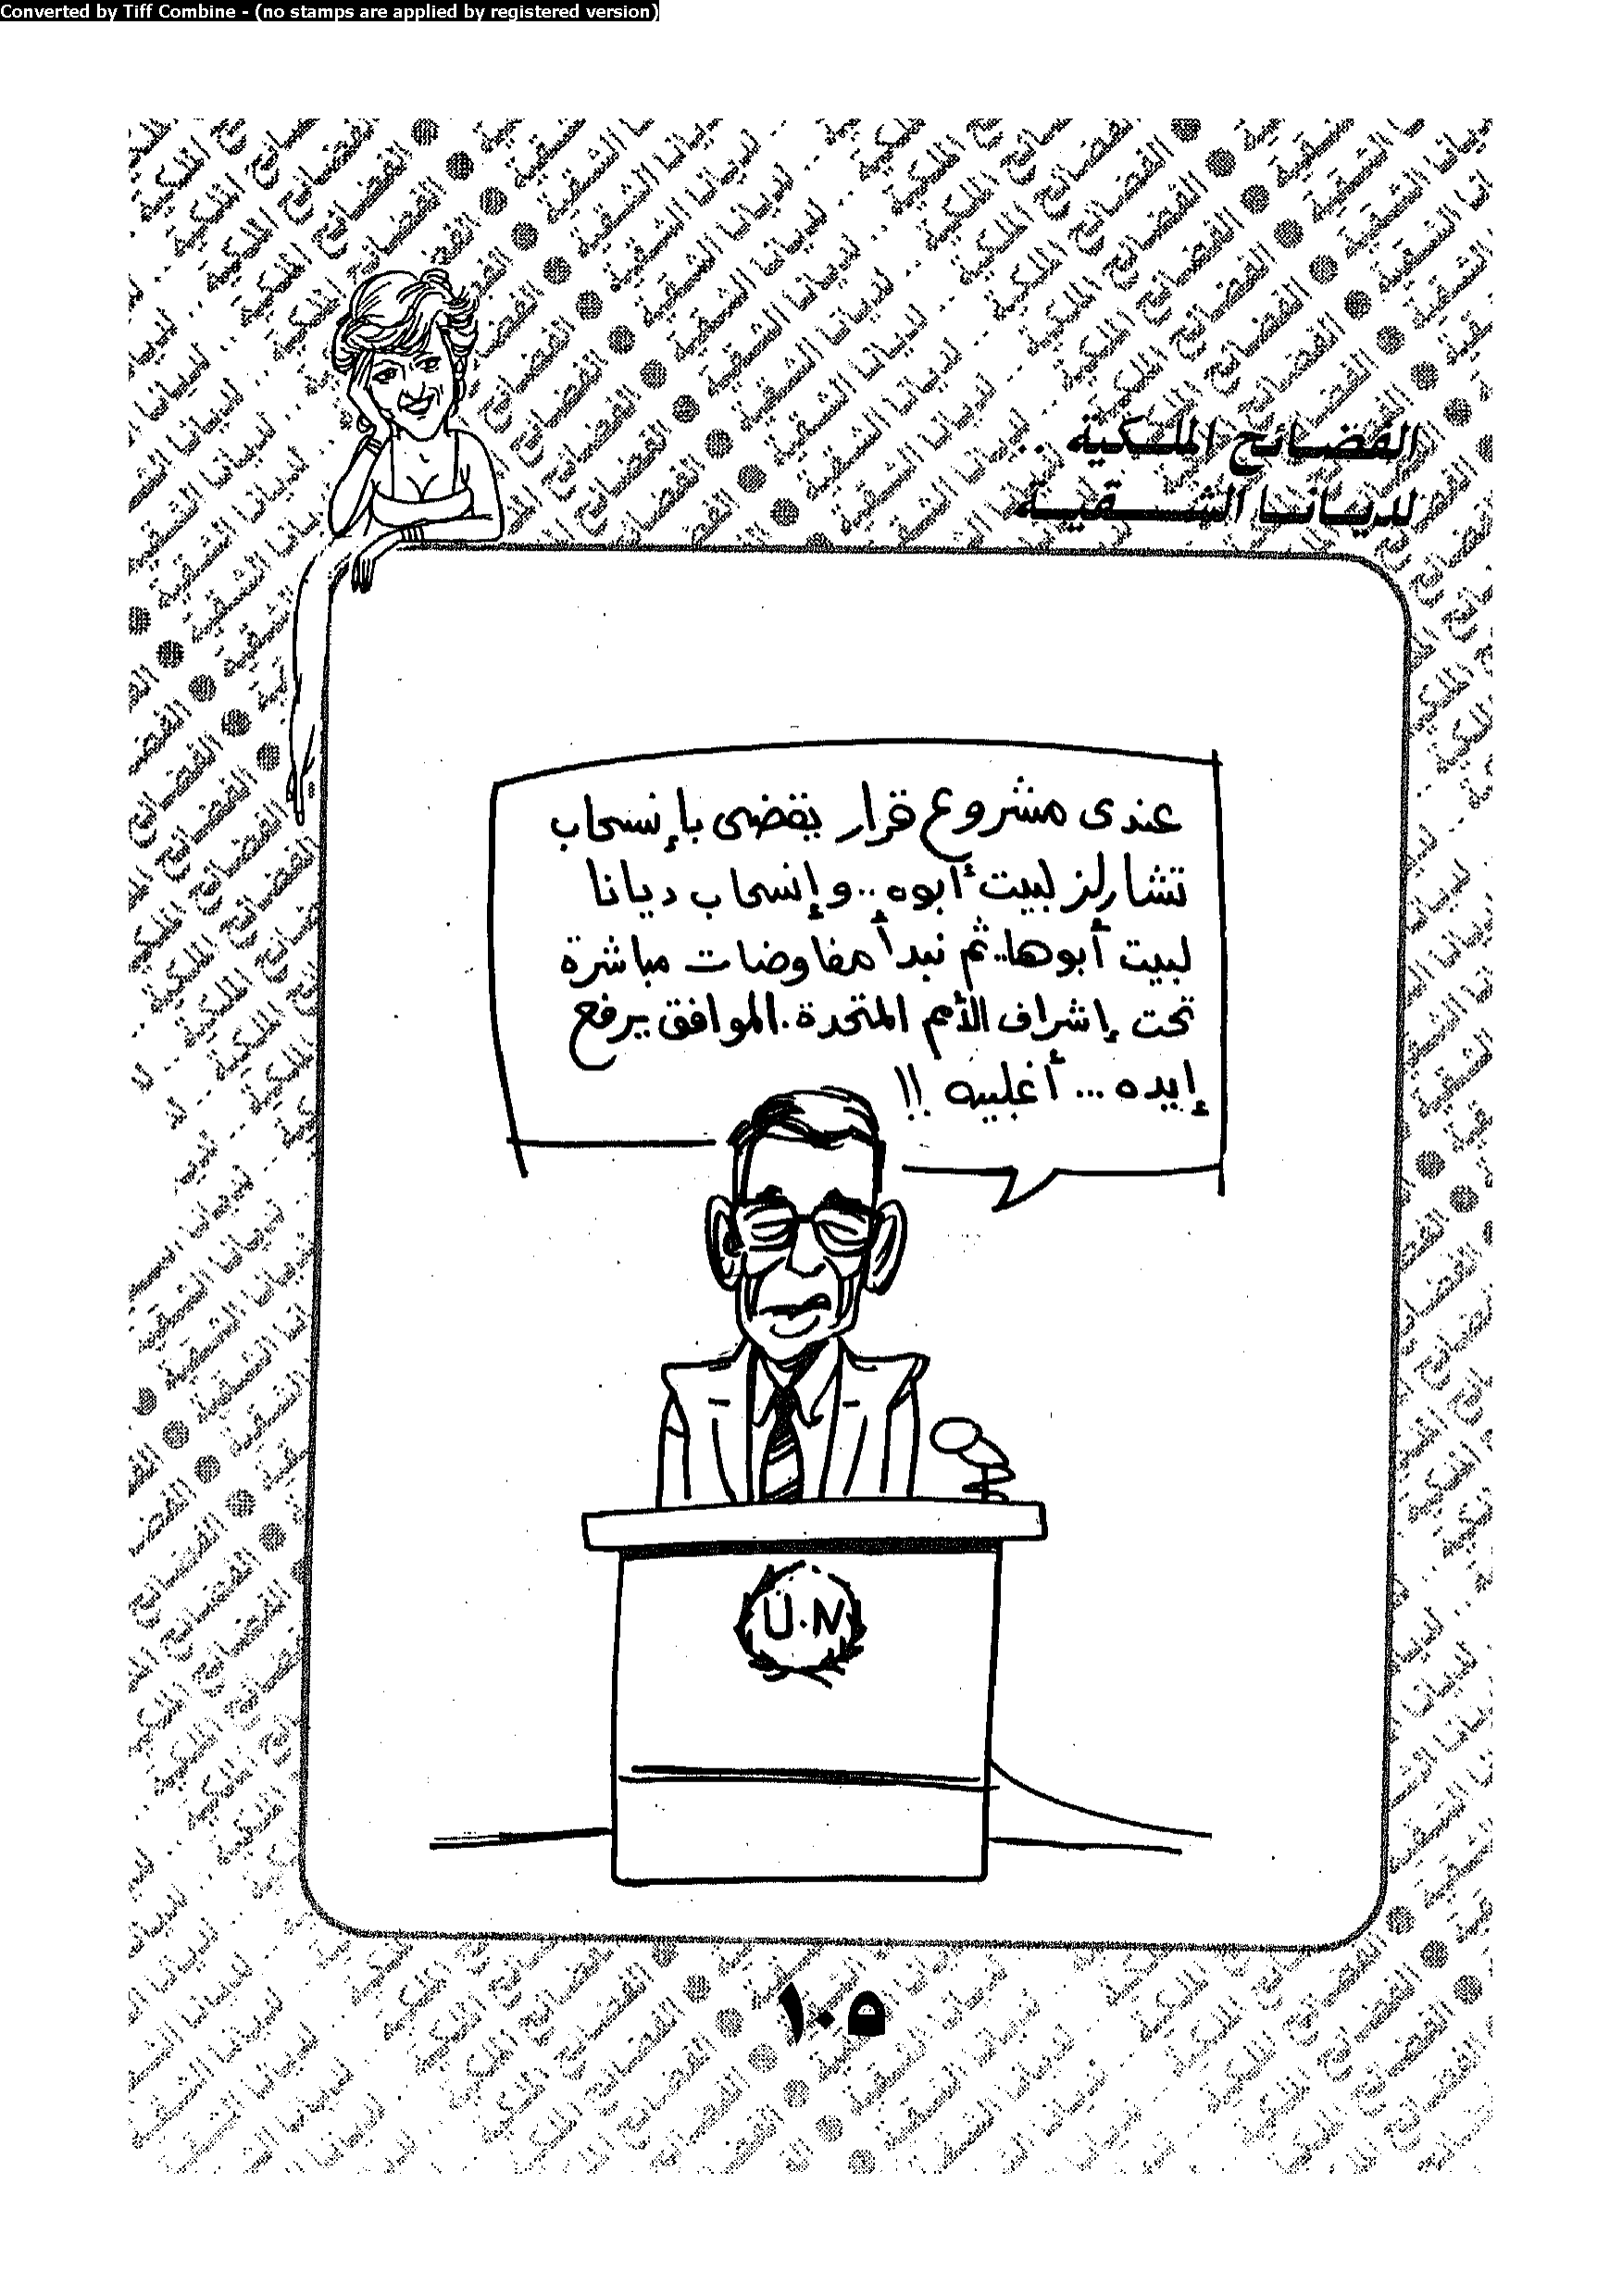 Converted by Tiff Combine - (no stamps are applied by registered version)
الفضائح الملكية ..
لديانا الشقية
عندى مشروع قرار يقضى بإنسحاب
تشارلز لبيت أبوه .. وإنسحاب ديانا
لبيت أبوها .. ثم نبدأ مفاوضات مباشرة
تحت إشراف الأمم المتحدة . الموافق يرفع
إيده ... أغلبيه !!
U.N
١٠٥